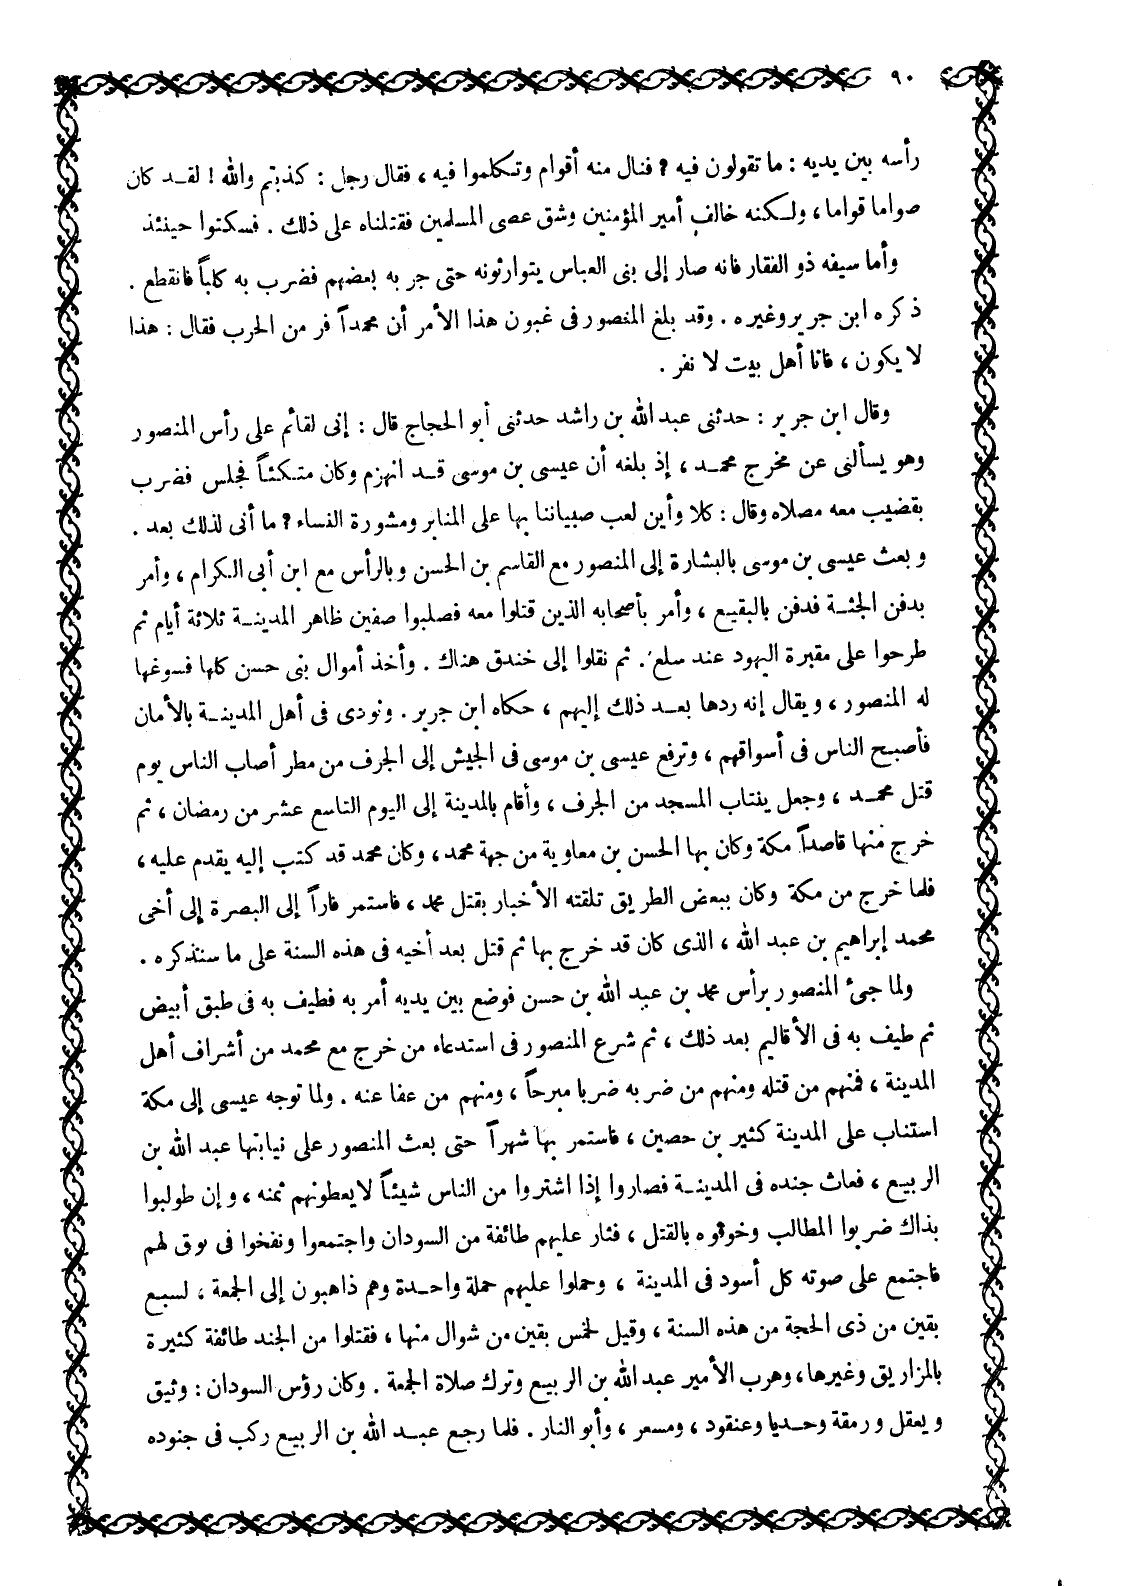 ٩٠
رأسه بين يديه : ما تقولون فيه ؟ فنال منه أقوام وتكلموا فيه ، فقال رجل : كذبتم والله ! لقد كان
صواما قواما ، ولكنه خالف أمير المؤمنين وشق عصى المسلمين فقتلناه على ذلك . فسكتوا حينئذ
وأما سيفه ذو الفقار فانه صار إلى بنى العباس يتوارثونه حتى جر به بعضهم فضرب به كلباً فانقطع .
ذكره ابن جرير وغيره . وقد بلغ المنصور فى غبون هذا الأمر أن محمداً فر من الحرب فقال : هذا
لا يكون ، فانا أهل بيت لا نفر .
وقال ابن جرير : حدثنى عبد الله بن راشد حدثنى أبو الحجاج قال : إنى لقائم على رأس المنصور
وهو يسألنى عن مخرج محمد ، إذ بلغه أن عيسى بن موسى قد انهزم وكان متكئاً فجلس فضرب
بقضيب معه مصلاه وقال : كلا وأين لعب صبياننا بها على المنابر ومشورة النساء ؟ ما أنى لذلك بعد .
وبعث عيسى بن موسى بالبشارة إلى المنصور مع القاسم بن الحسن وبالرأس مع ابن أبى الكرام ، وأمر
بدفن الجثة فدفن بالبقيع ، وأمر بأصحابه الذين قتلوا معه فصلبوا صفين ظاهر المدينة ثلاثة أيام ثم
طرحوا على مقبرة اليهود عند سلع . ثم نقلوا إلى خندق هناك . وأخذ أموال بنى حسن كلها فسوغها
له المنصور ، ويقال إنه ردها بعد ذلك إليهم ، حكاه ابن جرير . ونودى فى أهل المدينة بالأمان
فأصبح الناس فى أسواقهم ، وترفع عيسى بن موسى فى الجيش إلى الجرف من مطر أصاب الناس يوم
قتل محمد ، وجعل ينتاب المسجد من الجرف ، وأقام بالمدينة إلى اليوم التاسع عشر من رمضان ، ثم
خرج منها قاصداً مكة وكان بها الحسن بن معاوية من جهة محمد ، وكان محمد قد كتب إليه يقدم عليه ،
فلما خرج من مكة وكان ببعض الطريق تلقته الأخبار بقتل محمد ، فاستمر فاراً إلى البصرة إلى أخى
محمد إبراهيم بن عبد الله ، الذى كان قد خرج بها ثم قتل بعد أخيه فى هذه السنة على ما سنذكره .
ولما جىء المنصور برأس محمد بن عبد الله بن حسن فوضع بين يديه أمر به فطيف به فى طبق أبيض
ثم طيف به فى الأقاليم بعد ذلك ، ثم شرع المنصور فى استدعاء من خرج مع محمد من أشراف أهل
المدينة ، فمنهم من قتله ومنهم من ضربه ضربا مبرحاً ، ومنهم من عفا عنه . ولما توجه عيسى إلى مكة
استناب على المدينة كثير بن حصين ، فاستمر بها شهراً حتى بعث المنصور على نيابتها عبد الله بن
الربيع ، فعاث جنده فى المدينة فصاروا إذا اشتروا من الناس شيئاً لا يعطونهم ثمنه ، وإن طولبوا
بذاك ضربوا المطالب وخوفوه بالقتل ، فثار عليهم طائفة من السودان واجتمعوا ونفخوا فى بوق لهم
فاجتمع على صوته كل أسود فى المدينة ، وحملوا عليهم حملة واحدة وهم ذاهبون إلى الجمعة ، لسبع
بقين من ذى الحجة من هذه السنة ، وقيل لخمس بقين من شوال منها ، فقتلوا من الجند طائفة كثيرة
بالمزاريق وغيرها ، وهرب الأمير عبد الله بن الربيع وترك صلاة الجمعة . وكان رؤس السودان : وثيق
ويعقل ورمقة وحديا وعنقود ، ومسعر ، وأبو النار . فلما رجع عبد الله بن الربيع ركب فى جنوده